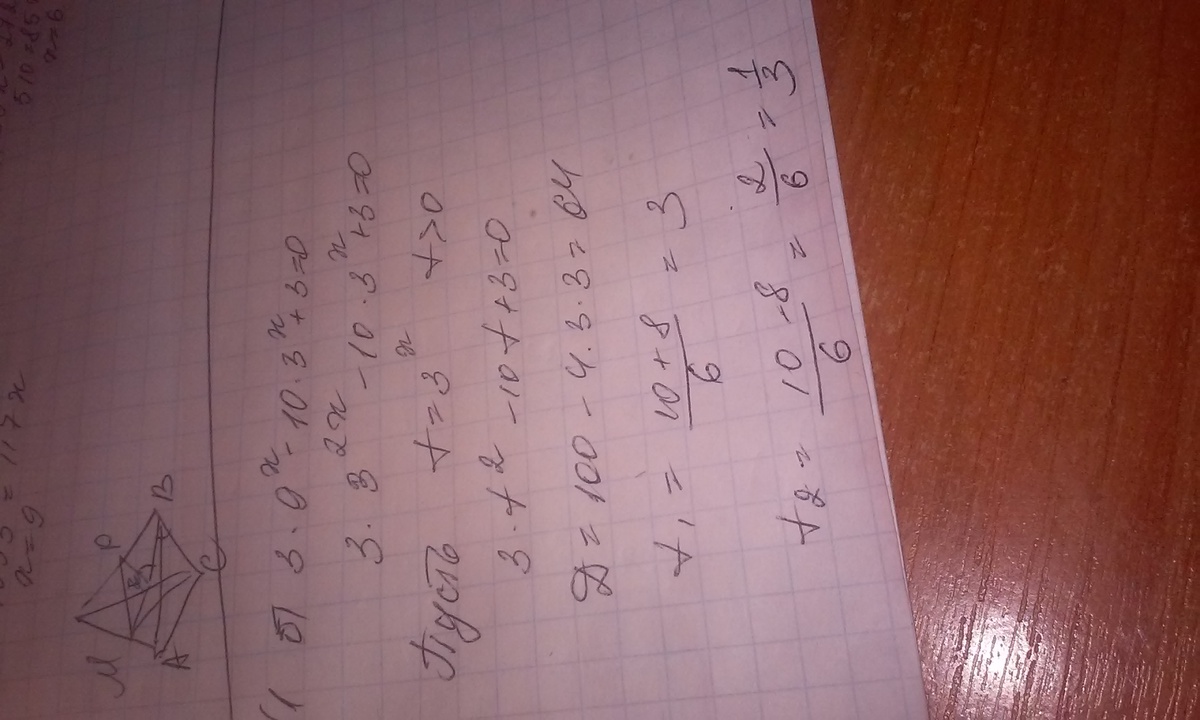 a=9
M P B
A C
б) 3·9^x - 10·3^x + 3=0
3·3^2x - 10·3^x + 3=0
Пусть t=3^x t>0
3·t^2 - 10t + 3=0
D = 100 - 4·3·3 = 64
t1 = (10+8)/6 = 3
t2 = (10-8)/6 = 2/6 = 1/3